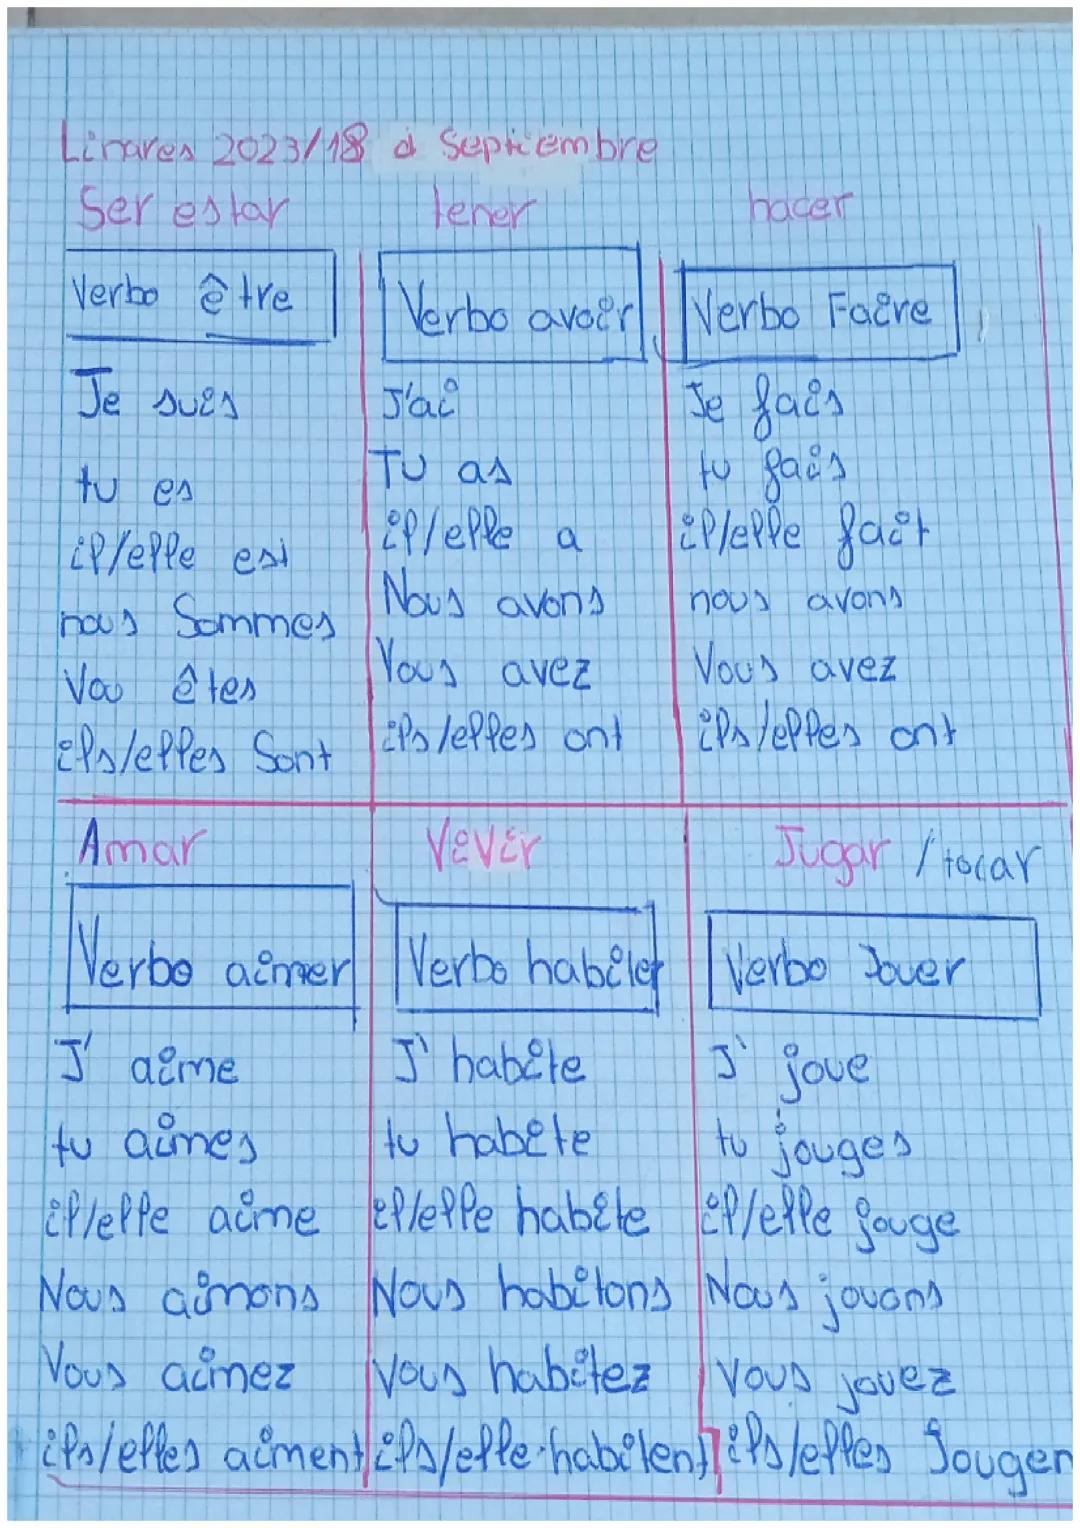 Linares 2023/18 d Septiembre
Ser estar
Verbo être
Je suis
tu es
il/elle est
nous Sommes
Vou êtes
ils/elles Sont
tener
Verbo avoir
J'ai
TU as
il/elle a
Nous avons
Vous avez
ils/elles ont
hacer
Verbo Faire
Je fais
tu fais
il/elle fait
nous avons
Vous avez
ils/elles ont
Amar
Verbo aimer
J' aime
tu aimes
il/elle aime
Nous aimons
Vous aimez
ils/elles aiment
ViVir
Verbo habiter
J' habite
tu habite
il/elle habite
Nous habitons
Vous habitez
ils/elle habitent
Jugar / tocar
Verbo Jouer
J' joue
tu jouges
il/elle jouge
Nous jouons
Vous jouez
ils/elles Jougen